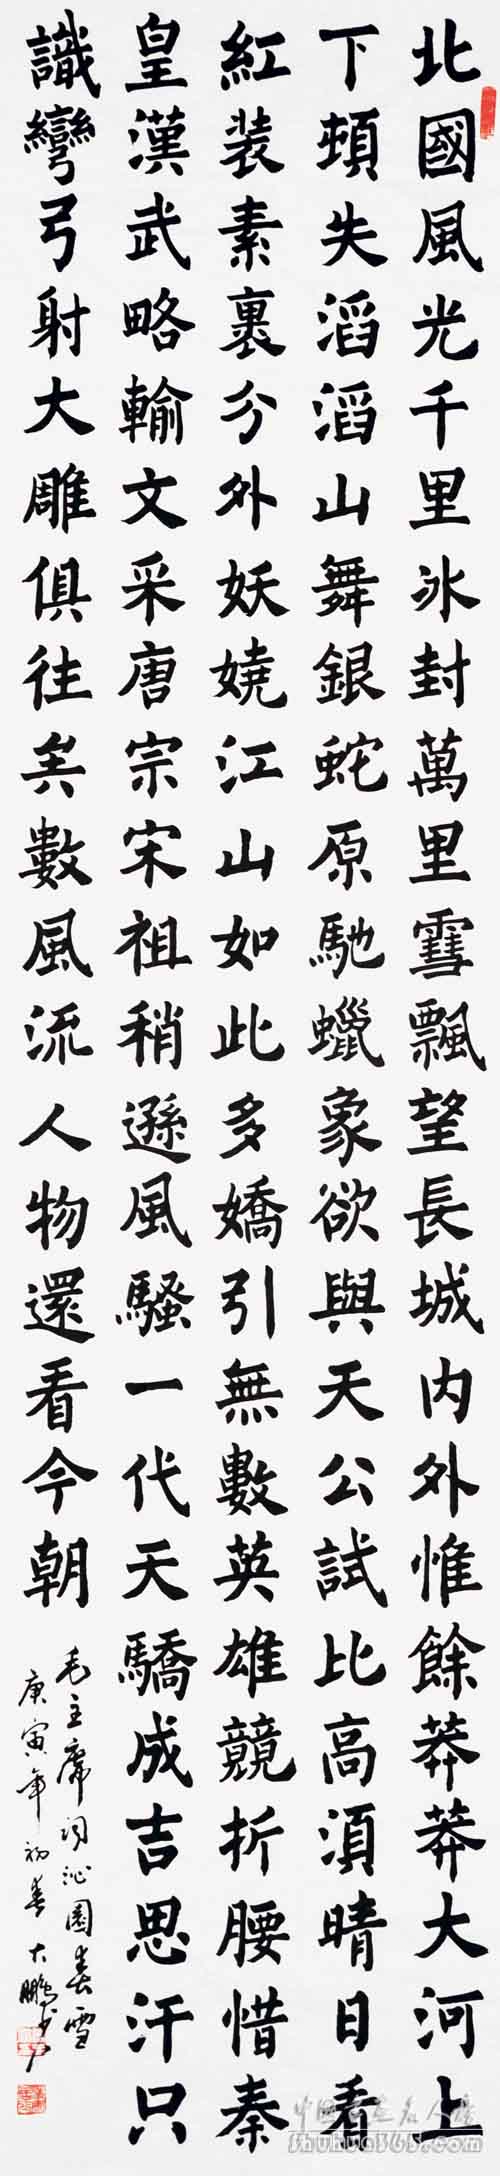 北國風光千里冰封萬里雪飄望長城内外惟餘莽莽大河上
下頓失滔滔山舞銀蛇原馳蠟象欲與天公試比高須晴日看
紅装素裹分外妖嬈江山如此多嬌引無數英雄競折腰惜秦
皇漢武略輸文采唐宗宋祖稍遜風騷一代天驕成吉思汗只
識彎弓射大雕俱往矣數風流人物還看今朝
毛主席詞沁園春雪
庚寅年初春大鵬书
shuhua365.com